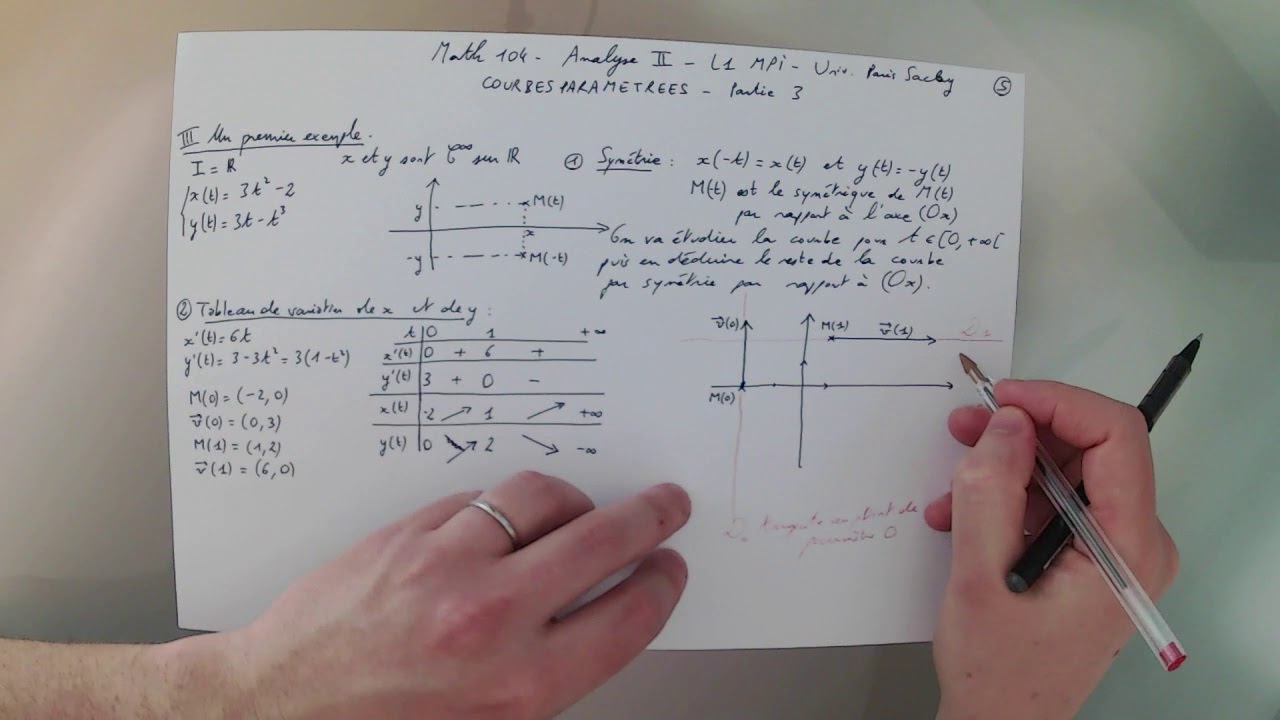 Math 104 - Analyse II - L1 MPI - Univ. Paris Saclay
COURBES PARAMETREES - Partie 3
5
III Un premier exemple.
I = ℝ
x(t) = 3t² - 2
y(t) = 3t - t³
x et y sont C^∞ sur ℝ
y
M(t)
x
-y
M(-t)
① Symétrie : x(-t) = x(t) et y(t) = -y(t)
M(t) est le symétrique de M(t)
par rapport à l'axe (Ox)
On va étudier la courbe pour t ∈ [0, +∞[
puis en déduire le reste de la courbe
par symétrie par rapport à (Ox).
② Tableau de variation de x et de y :
x'(t) = 6t
y'(t) = 3 - 3t² = 3(1 - t²)
M(0) = (-2, 0)
v⃗(0) = (0, 3)
M(1) = (1, 2)
v⃗(1) = (6, 0)
t 0 1 +∞
x'(t) 0 + 6 +
y'(t) 3 + 0 -
x(t) -2 ↗ 1 ↗ +∞
y(t) 0 ↗ 2 ↘ -∞
v⃗(0)
M(1)
v⃗(1)
D₁
M(0)
D₀ tangente au point de
paramètre 0